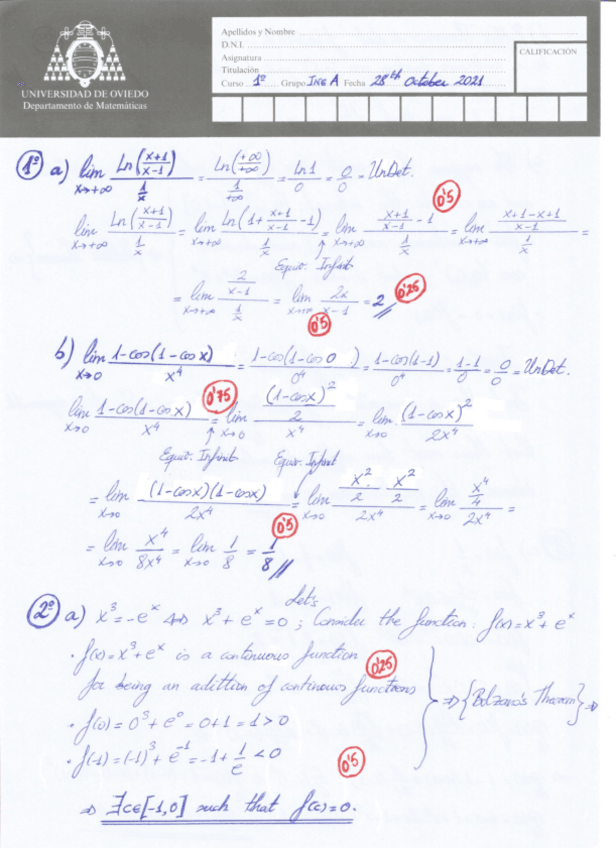 UNIVERSIDAD DE OVIEDO
Departamento de Matemáticas
Apellidos y Nombre
D.N.I.
Asignatura
Titulación
Curso 1º Grupo ING A Fecha 28th October 2021
CALIFICACIÓN
1º a) lim x→+∞ Ln((x+1)/(x-1)) / (1/x) = Ln(+∞/+∞) / (1/+∞) = Ln1/0 = 0/0 = UnDet.
0'5
lim x→+∞ Ln((x+1)/(x-1)) / (1/x) = lim x→+∞ Ln(1+(x+1)/(x-1)-1) / (1/x) = lim x→+∞ ((x+1)/(x-1)-1) / (1/x) = lim x→+∞ ((x+1-x+1)/(x-1)) / (1/x) =
Equiv. Infinit
= lim x→+∞ (2/(x-1)) / (1/x) = lim x→+∞ 2x/(x-1) = 2 0'25
0'5
b) lim x→0 (1-cos(1-cosx))/x⁴ = (1-cos(1-cos0))/0⁴ = (1-cos(1-1))/0⁴ = (1-1)/0 = 0/0 = UnDet.
0'75
lim x→0 (1-cos(1-cosx))/x⁴ = lim x→0 ((1-cosx)²/2)/x⁴ = lim x→0 (1-cosx)²/2x⁴
Equiv. Infinit Equiv. Infinit
= lim x→0 (1-cosx)(1-cosx)/2x⁴ = lim x→0 (x²/2 · x²/2)/2x⁴ = lim x→0 (x⁴/4)/2x⁴ =
0'5
= lim x→0 x⁴/8x⁴ = lim x→0 1/8 = 1/8
2º a) x³=-eˣ ⇔ x³+eˣ=0; Let's Consider the function: f(x)=x³+eˣ
· f(x)=x³+eˣ is a continuous function
0'25
for being an adittion of continous functions
⇒ {Bolzano's Theorem} ⇒
· f(0)=0³+e⁰=0+1=1>0
· f(-1)=(-1)³+e⁻¹=-1+1/e<0
0'5
⇒ ∃c∈[-1,0] such that f(c)=0.